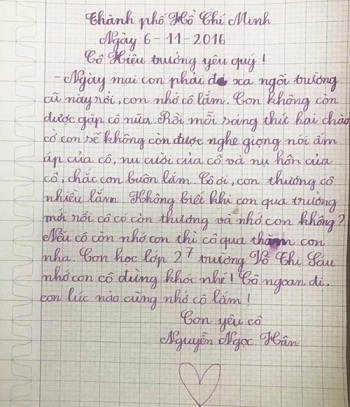 Thành phố Hồ Chí Minh
Ngày 6-11-2016
Cô Hiệu trưởng yêu quý!
- Ngày mai con phải đi xa ngôi trường
cũ này rồi, con nhớ cô lắm. Con không còn
được gặp cô nữa. Rồi mỗi sáng thứ hai chào
cờ con sẽ không còn được nghe giọng nói ấm
áp của cô, nụ cười của cô và nụ hôn của
cô, chắc con buồn lắm. Cô ơi, con thương cô
nhiều lắm. Không biết khi con qua trường
mới rồi cô có còn thương và nhớ con không?
Nếu cô còn nhớ con thì cô qua thăm con
nha. Con học lớp 2⁷ trường Võ Thị Sáu
nhớ con cô đừng khóc nhé! Cô ngoan đi.
con lúc nào cũng nhớ cô lắm!
Con yêu cô
Nguyễn Ngọc Hân